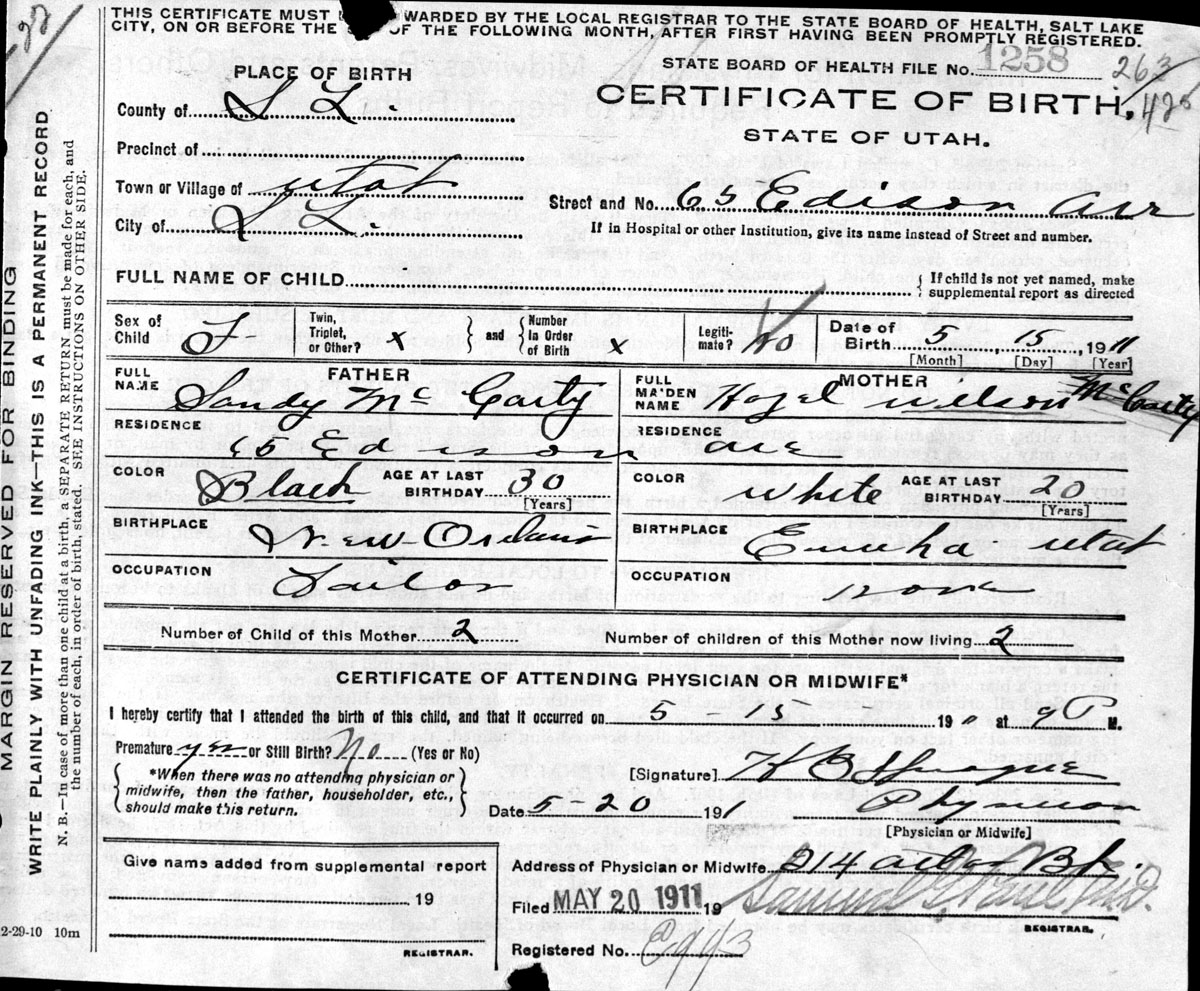 THIS CERTIFICATE MUST WARDED BY THE LOCAL REGISTRAR TO THE STATE BOARD OF HEALTH, SALT LAKE
CITY, ON OR BEFORE THE OF THE FOLLOWING MONTH, AFTER FIRST HAVING BEEN PROMPTLY REGISTERED.
STATE BOARD OF HEALTH FILE No. 1258 263
426
PLACE OF BIRTH
CERTIFICATE OF BIRTH.
County of S L.
STATE OF UTAH.
Precinct of
Town or Village of Utah
Street and No. 65 Edison Ave
City of S L.
If in Hospital or other Institution, give its name instead of Street and number.
FULL NAME OF CHILD
{ If child is not yet named, make
supplemental report as directed
Sex of Child F
Twin, Triplet, or Other? x } and { Number In Order of Birth x
Legiti-mate? No
Date of Birth 5 15, 1911
[Month] [Day] [Year]
FATHER
FULL NAME Sandy Mc Carty
MOTHER
FULL MAIDEN NAME Hazel Wilson McCarty
RESIDENCE 65 Edison
RESIDENCE ave
COLOR Black AGE AT LAST BIRTHDAY 30 [Years]
COLOR White AGE AT LAST BIRTHDAY 20 [Years]
BIRTHPLACE New Orleans
BIRTHPLACE Eureka Utah
OCCUPATION
OCCUPATION none
Number of Child of this Mother 2
Number of children of this Mother now living 2
CERTIFICATE OF ATTENDING PHYSICIAN OR MIDWIFE*
I hereby certify that I attended the birth of this child, and that it occurred on 5 - 15 191 at 9 P M.
Premature yes or Still Birth? No (Yes or No)
{ *When there was no attending physician or
midwife, then the father, householder, etc.,
should make this return. }
[Signature] H B Sprague
Date 5-20 191
Physician
[Physician or Midwife]
Give name added from supplemental report
19
REGISTRAR.
Address of Physician or Midwife 214
Filed MAY 20 1911 19 Samuel G. Paul, M.D.
REGISTRAR.
Registered No.
MARGIN RESERVED FOR BINDING
WRITE PLAINLY WITH UNFADING INK—THIS IS A PERMANENT RECORD.
N. B.—In case of more than one child at a birth, a SEPARATE RETURN must be made for each, and
the number of each, in order of birth, stated. SEE INSTRUCTIONS ON OTHER SIDE.
2-29-10 10m